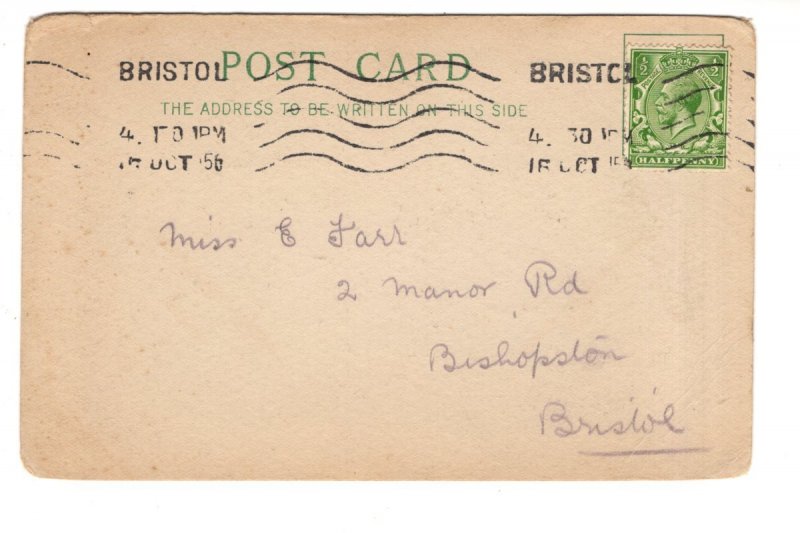 BRISTOL POST CARD BRISTOL
THE ADDRESS TO BE WRITTEN ON THIS SIDE
4. 30 PM
16 OCT
HALFPENNY
Miss E Farr
2 Manor Rd
Bishopston
Bristol